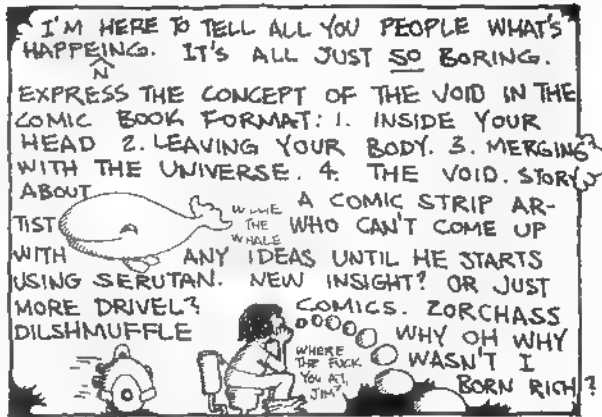 I'M HERE TO TELL ALL YOU PEOPLE WHAT'S
HAPPEING. IT'S ALL JUST SO BORING.
N
EXPRESS THE CONCEPT OF THE VOID IN THE
COMIC BOOK FORMAT: 1. INSIDE YOUR
HEAD 2. LEAVING YOUR BODY. 3. MERGING
WITH THE UNIVERSE. 4. THE VOID. STORY?
ABOUT A COMIC STRIP AR-
TIST WHO CAN'T COME UP
WITH ANY IDEAS UNTIL HE STARTS
USING SERUTAN. NEW INSIGHT? OR JUST
MORE DRIVEL? COMICS. ZORCHASS
DILSHMUFFLE WHY OH WHY
WASN'T I
BORN RICH?
THE
WHALE
WHERE
THE FUCK
YOU AT,
JIM?